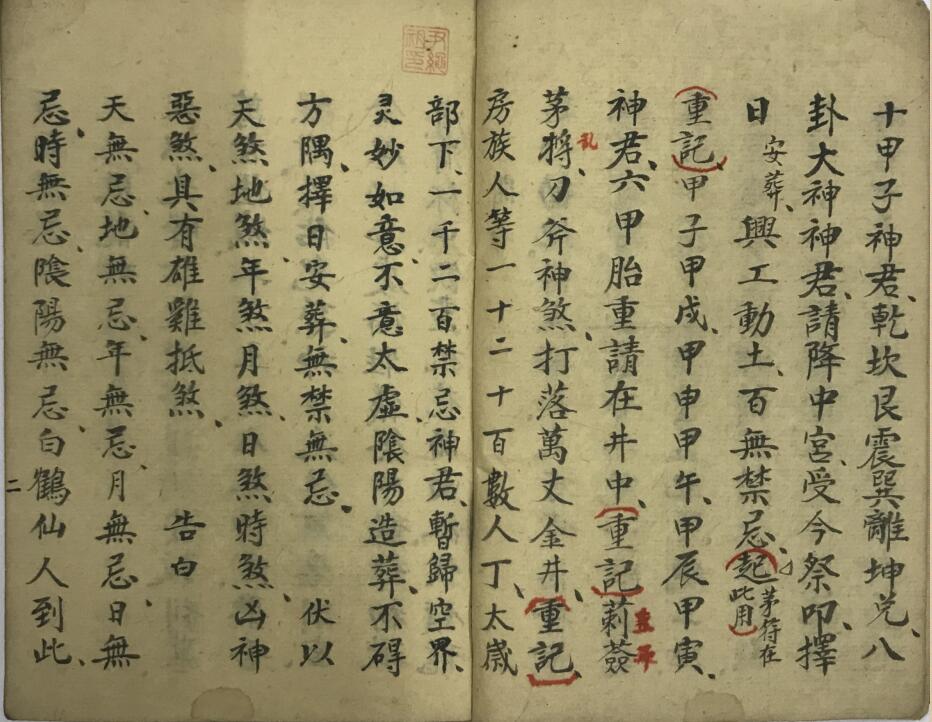 十甲子神君、乾坎艮震巽離坤兌、八
卦大神神君、請降中宮、受今祭叩、擇
日安葬、興工動土、百無禁忌、起茅符在此用
重記、甲子甲戌、甲申甲午、甲辰甲寅、
神君、六甲胎重請在井中、重記莿簽
茅將刀斧神煞、打落萬丈金井、重記、
房族人等一十二十百數人丁、太歲
部下、一千二百禁忌神君、暫歸空界、
灵妙如意、不意太虛、陰陽造葬、不碍
方隅、擇日安葬、無禁無忌、伏以
天煞地煞、年煞月煞、日煞時煞、凶神
惡煞、具有雄雞抵煞、告白
天無忌、地無忌、年無忌、月無忌、日無
忌、時無忌、陰陽無忌、白鶴仙人到此、
二